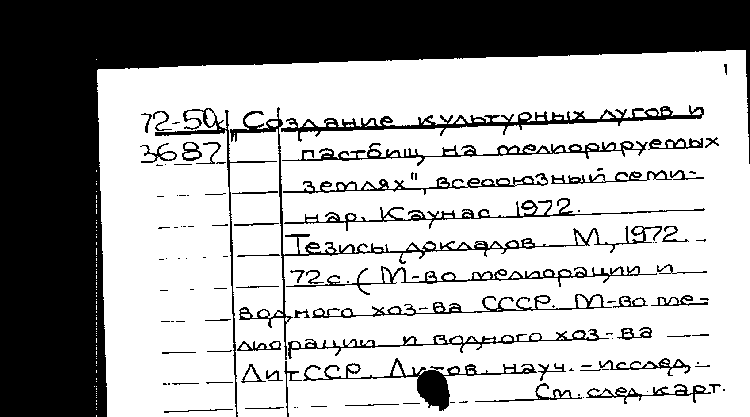 1
72-50к "Создание культурных лугов и
3687 пастбищ на мелиорируемых
землях", всесоюзный семи-
нар. Каунас. 1972.
Тезисы докладов. М., 1972.
72 с. (М-во мелиорации и
водного хоз-ва СССР. М-во ме-
лиорации и водного хоз-ва
ЛитССР. Литов. науч.-исслед.
См. след. карт.